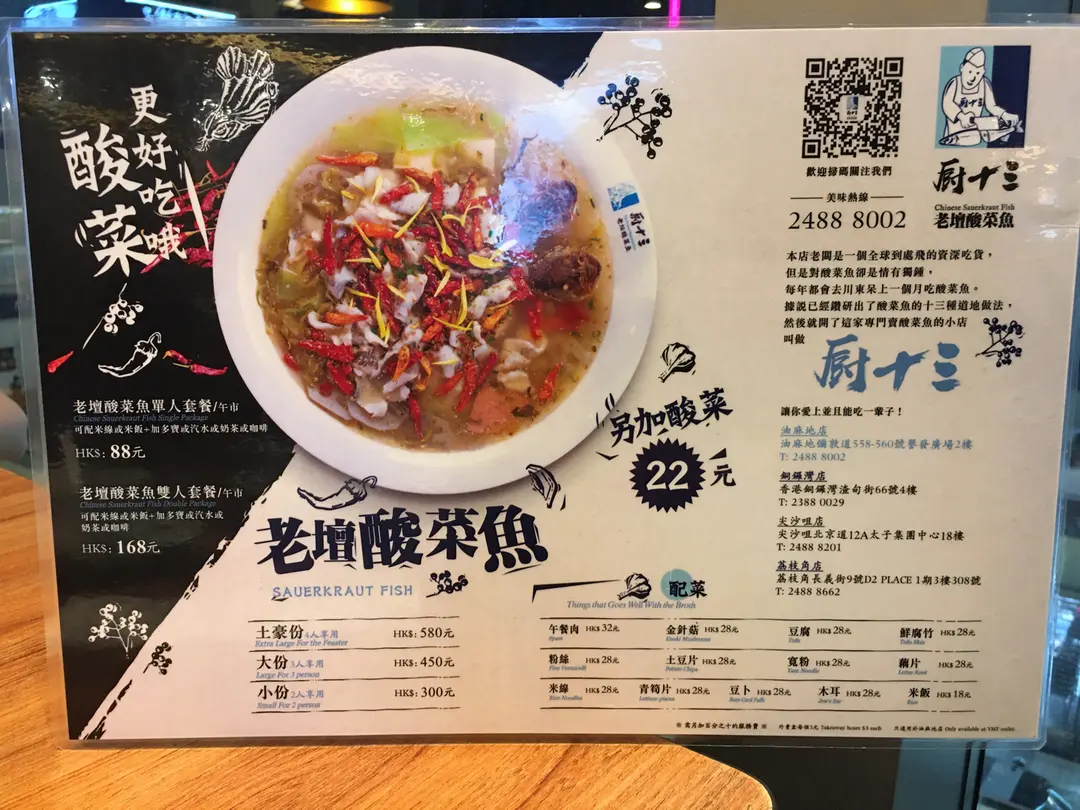 更好吃哦
酸菜
老壇酸菜魚單人套餐/午市
Chinese Sauerkraut Fish Single Package
可配米線或米飯+加多寶或汽水或奶茶或咖啡
HK$: 88元
老壇酸菜魚雙人套餐/午市
Chinese Sauerkraut Fish Double Package
可配米線或米飯+加多寶或汽水或
奶茶或咖啡
HK$: 168元
廚十三
老壇酸菜魚
另加酸菜
22元
老壇酸菜魚
SAUERKRAUT FISH
土豪份 4人享用 HK$: 580元
Extra Large For the Feaster
大份 3人享用 HK$: 450元
Large For 3 person
小份 2人享用 HK$: 300元
Small For 2 person
歡迎掃碼關注我們
美味熱線
2488 8002
廚十三
廚十三
Chinese Sauerkraut Fish
老壇酸菜魚
本店老闆是一個全球到處飛的資深吃貨，
但是對酸菜魚卻是情有獨鍾，
每年都會去川東呆上一個月吃酸菜魚。
據説已經鑽研出了酸菜魚的十三種道地做法，
然後就開了這家專門賣酸菜魚的小店
叫做
廚十三
讓你愛上並且能吃一輩子！
油麻地店
油麻地彌敦道558-560號譽發廣場2樓
T: 2488 8002
銅鑼灣店
香港銅鑼灣渣甸街66號4樓
T: 2388 0029
尖沙咀店
尖沙咀北京道12A太子集團中心18樓
T: 2488 8201
荔枝角店
荔枝角長義街9號D2 PLACE 1期3樓308號
T: 2488 8662
配菜
Things that Goes Well With the Broth
午餐肉 HK$ 32元 金針菇 HK$ 28元 豆腐 HK$ 28元 鮮腐竹 HK$ 28元
Spam Enoki Mushroom Tofu Tofu Skin
粉絲 HK$ 28元 土豆片 HK$ 28元 寬粉 HK$ 28元 藕片 HK$ 28元
Fine Vermicelli Potato Chips Lotus Root
米線 HK$ 28元 青筍片 HK$ 28元 豆卜 HK$ 28元 木耳 HK$ 28元 米飯 HK$ 18元
Rice Noodles Lettuce pieces Bean Curd Puffs Jew's Ear Rice
※ 需另加百分之十的服務費 ※ 外賣盒每個3元 Takeaway boxes $3 each 只適用於油麻地店 Only available at YMT outlet.